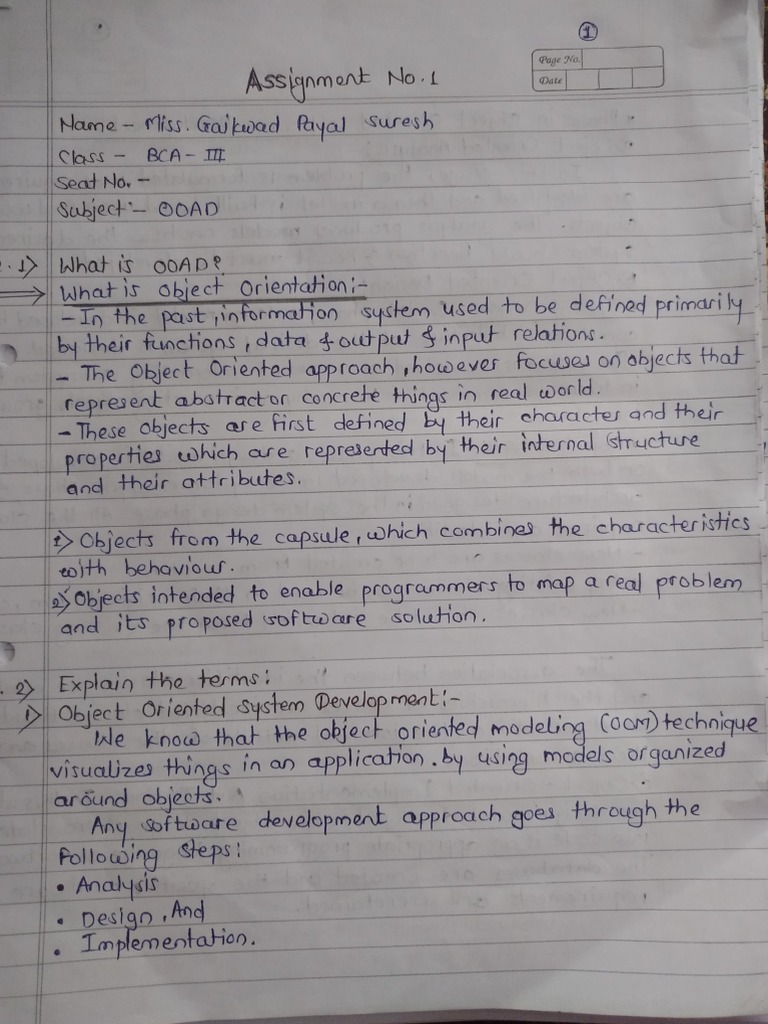 1
Page No.
Date
Assignment No.1
Name - Miss. Gaikwad Payal Suresh
Class - BCA - III
Seat No. -
Subject:- OOAD
.1) What is OOAD?
What is Object Orientation:-
- In the past, information system used to be defined primarily
by their functions, data & output & input relations.
- The Object Oriented approach, however focuses on objects that
represent abstract or concrete things in real world.
- These objects are first defined by their character and their
properties which are represented by their internal structure
and their attributes.
1) Objects from the capsule, which combines the characteristics
with behaviour.
2) Objects intended to enable programmers to map a real problem
and its proposed software solution.
. 2) Explain the terms:
1) Object Oriented System Development:-
We know that the object oriented modeling (OOM) technique
visualizes things in an application. by using models organized
around objects.
Any software development approach goes through the
following steps:
• Analysis
• Design, And
• Implementation.